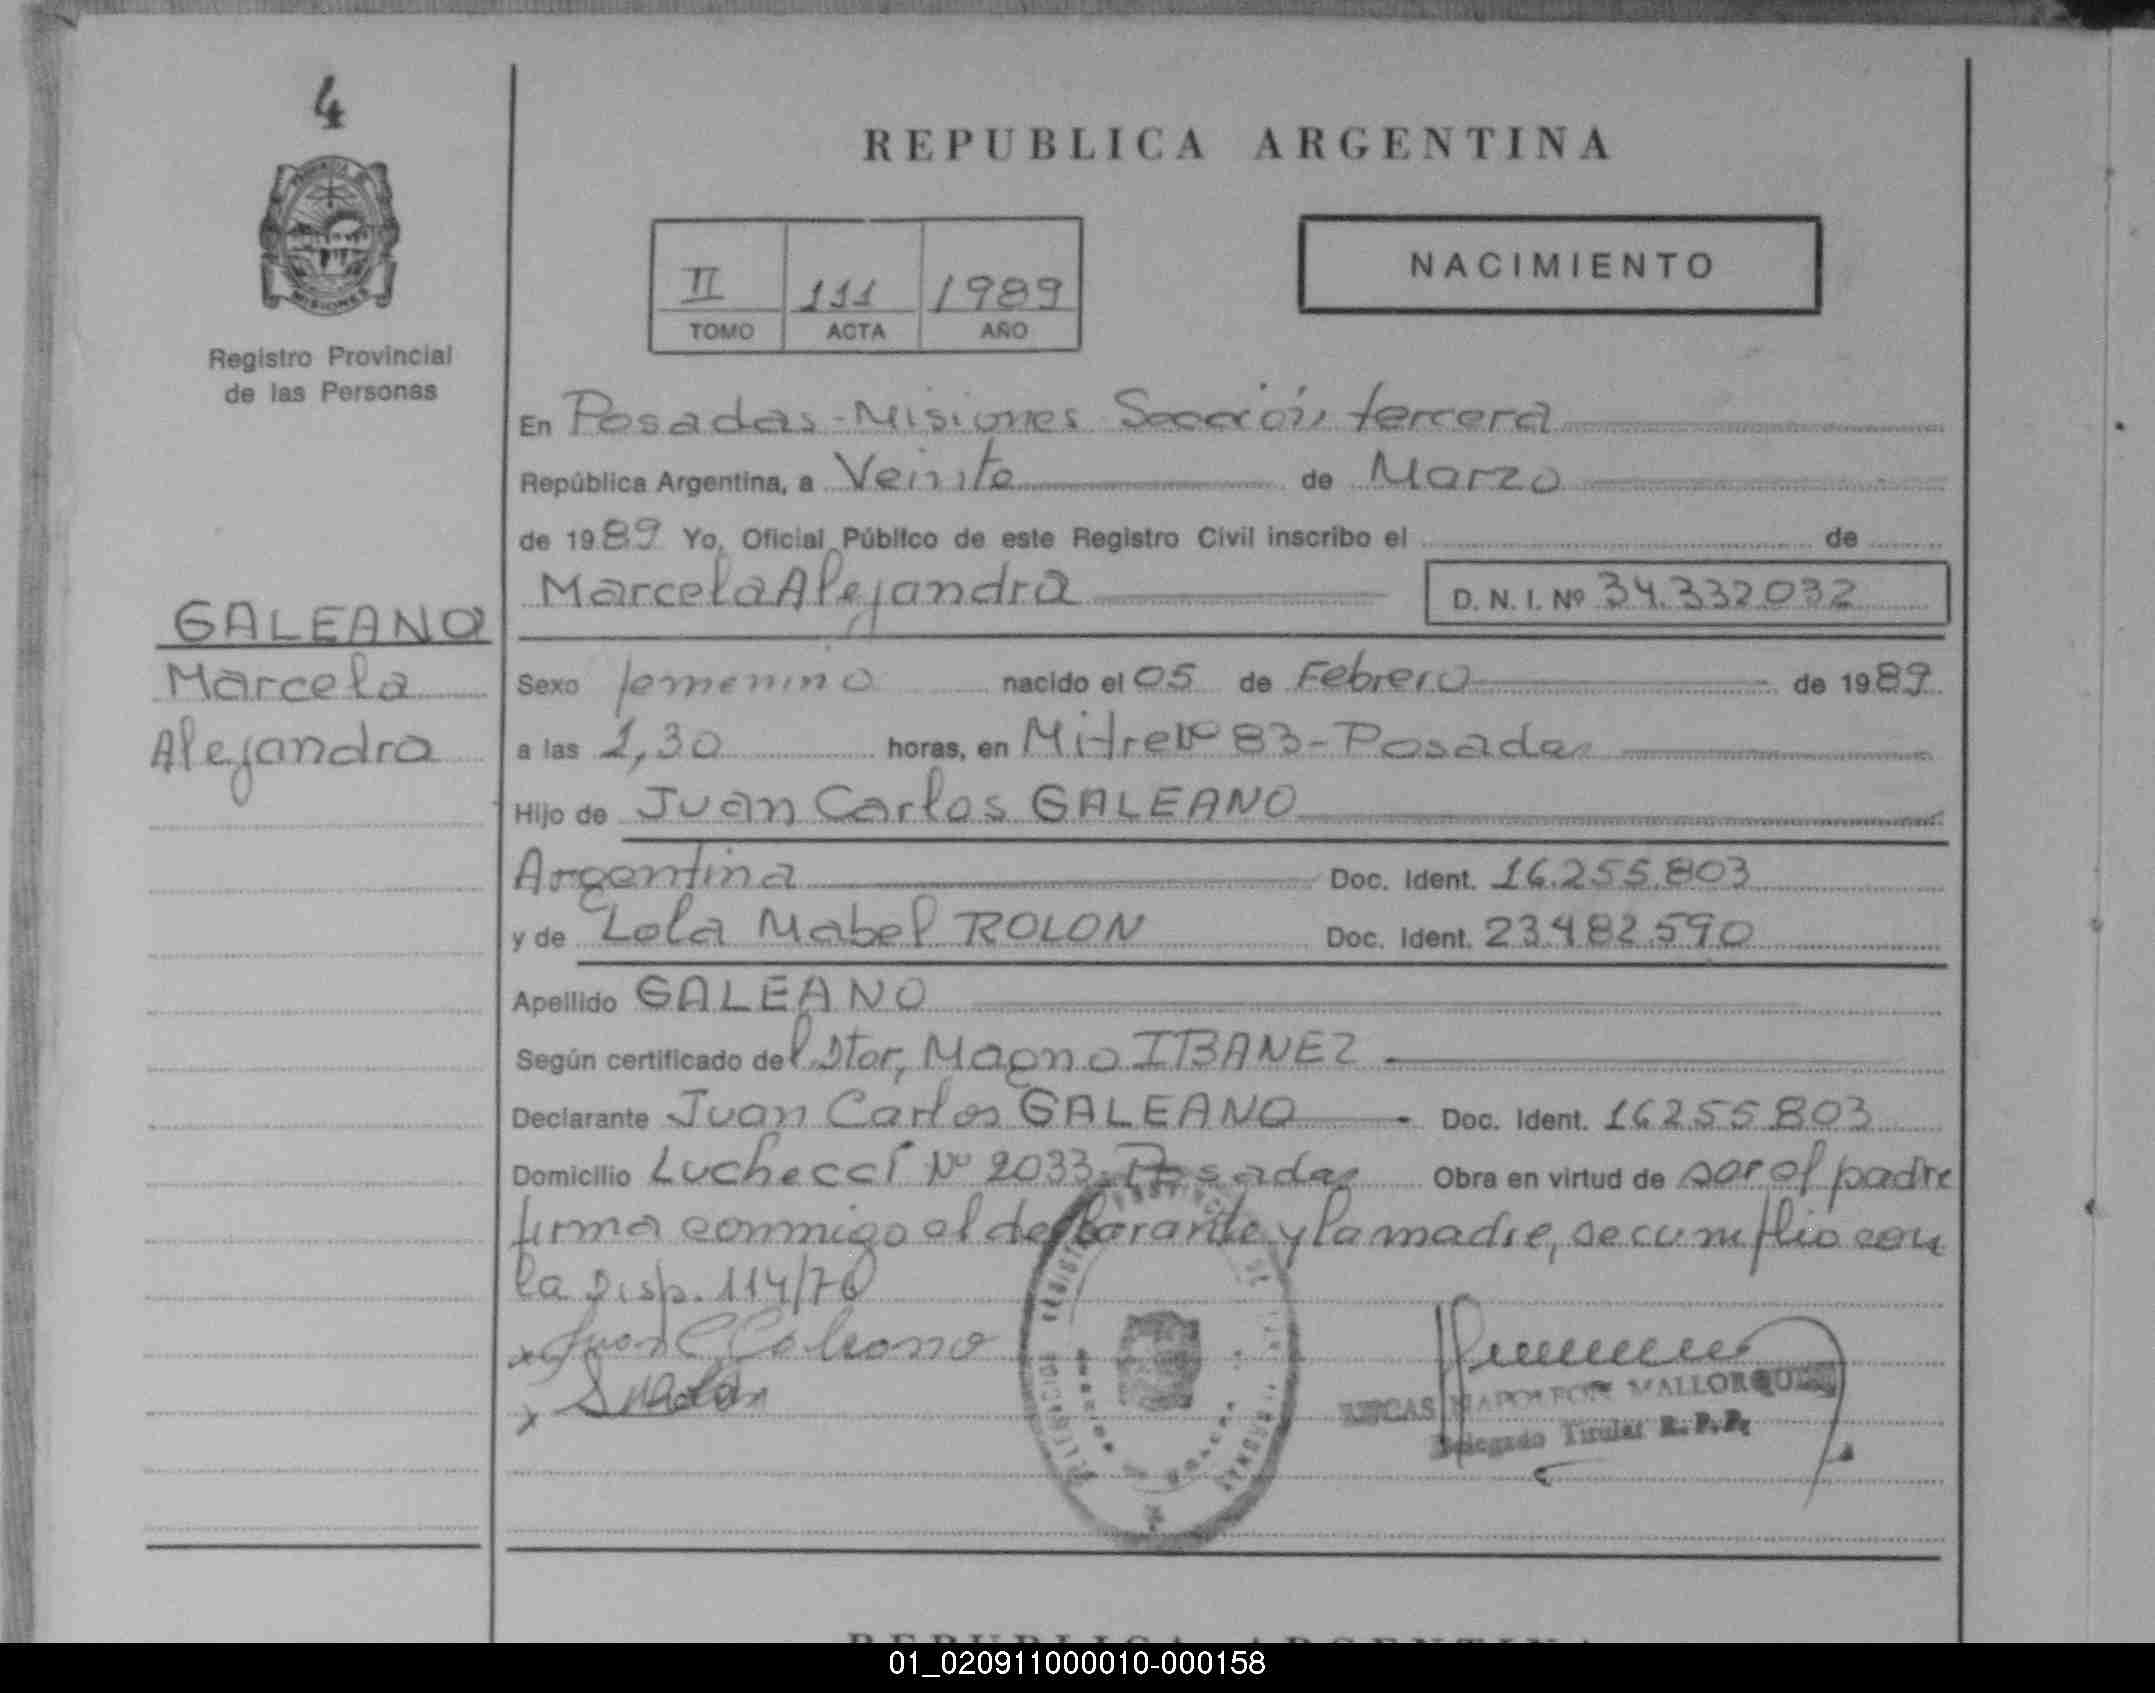 4
REPUBLICA ARGENTINA
PROVINCIA
MISIONES
Registro Provincial
de las Personas
II 111 1989
TOMO ACTA AÑO
NACIMIENTO
En Posadas-Misiones Sección tercera
República Argentina, a Veinte de Marzo
de 1989 Yo, Oficial Público de este Registro Civil inscribo el de
Marcela Alejandra D. N. I. Nº 34.332032
GALEANO
Marcela
Alejandra
Sexo femenino nacido el 05 de Febrero de 1989
a las 1,30 horas, en Mitre Nº 83-Posadas
Hijo de Juan Carlos GALEANO
Argentina Doc. Ident. 16.255.803
y de Lola Mabel ROLON Doc. Ident. 23.482.590
Apellido GALEANO
Según certificado del Dtor, Magno IBANEZ
Declarante Juan Carlos GALEANO Doc. Ident. 16255803
Domicilio Lucheccí Nº 2033-Posadas Obra en virtud de ser el padre
firma conmigo el declarante y la madre, se cumplio con
la Disp. 114/76
x Juan C Galeano
x
LUCAS NAPOLEON MALLORQUIN
Delegado Titular R.P.P.
REPUBLICA ARGENTINA
01_020911000010-000158